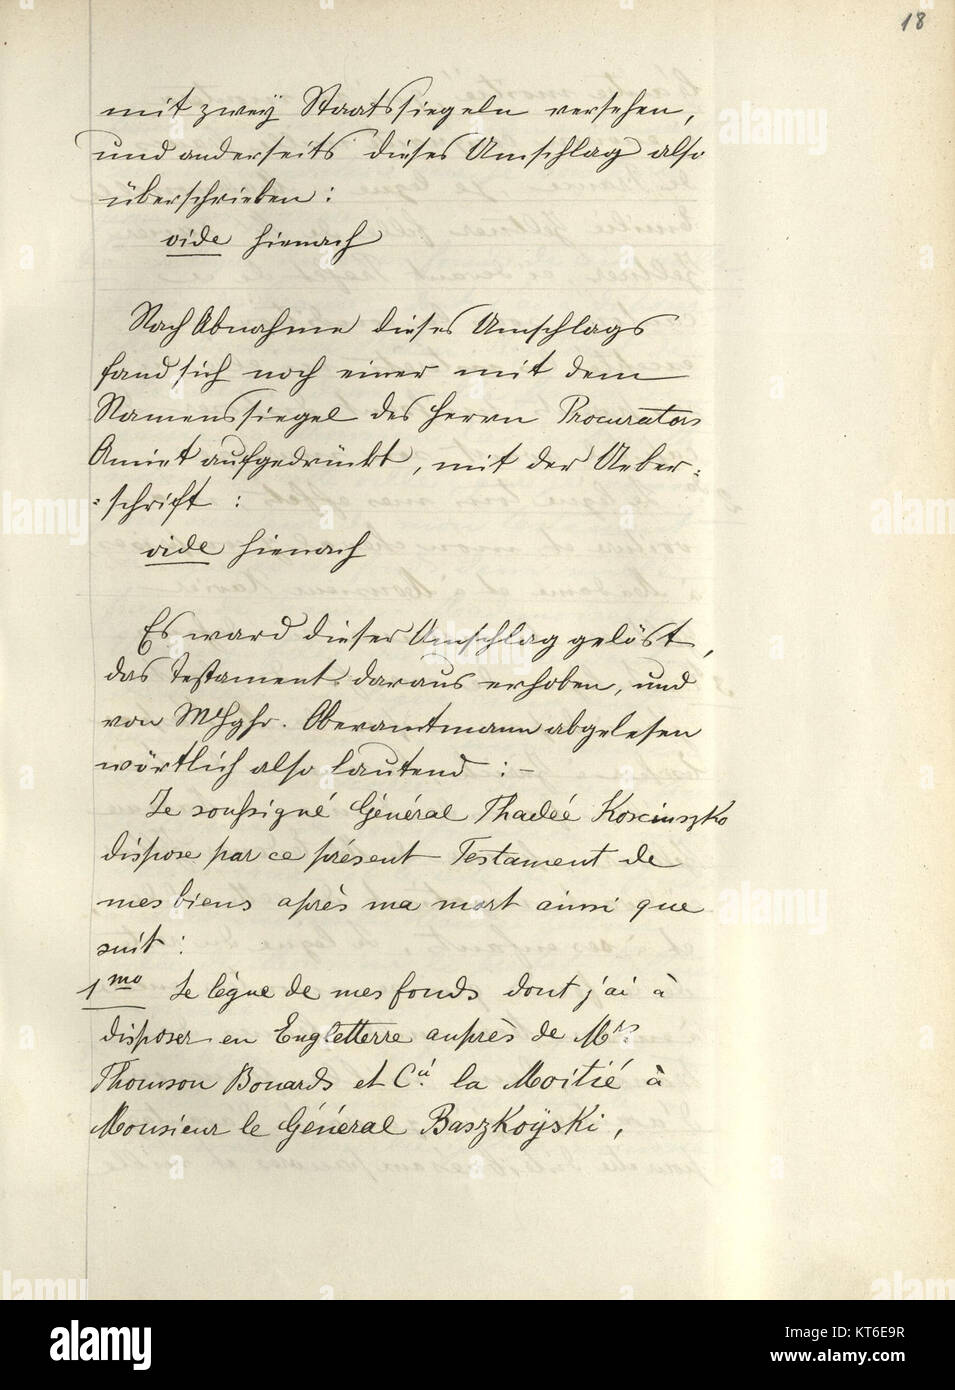 18
mit zweÿ Staatssiegeln versehen,
und anderseits dieses Umschlag also
überschrieben :
vide hienach
Nach Abnahme dieses Umschlags
fand sich noch einer mit dem
Namenssiegel des Herrn Procurators
Amiet aufgedrückt, mit der Ueber-
-schrift :
vide hienach
Es ward dieser Umschlag gelöst,
das Testament daraus erhoben, und
von MHghr. Oberamtmann abgelesen
wörtlich also lautend : -
Je soussigné Général Thadéé Kosciuszko
dispose par ce présent Testament de
mes biens après ma mort ainsi que
suit :
1mo Je lègue de mes fonds dont j'ai à
disposer en Engletterre auprès de Mrs.
Thomson Bonards et Cie. la Moitié à
Monsieur le Général Baszkoÿski,
alamy
Image ID: KT6E9R
www.alamy.com